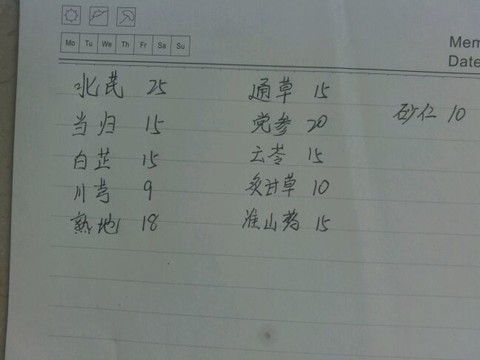 Mem
Date
Mo Tu We Th Fr Sa Su
北芪 25 通草 15
当归 15 党参 20 砂仁 10
白芷 15 云苓 15
川芎 9 炙甘草 10
熟地 18 淮山药 15